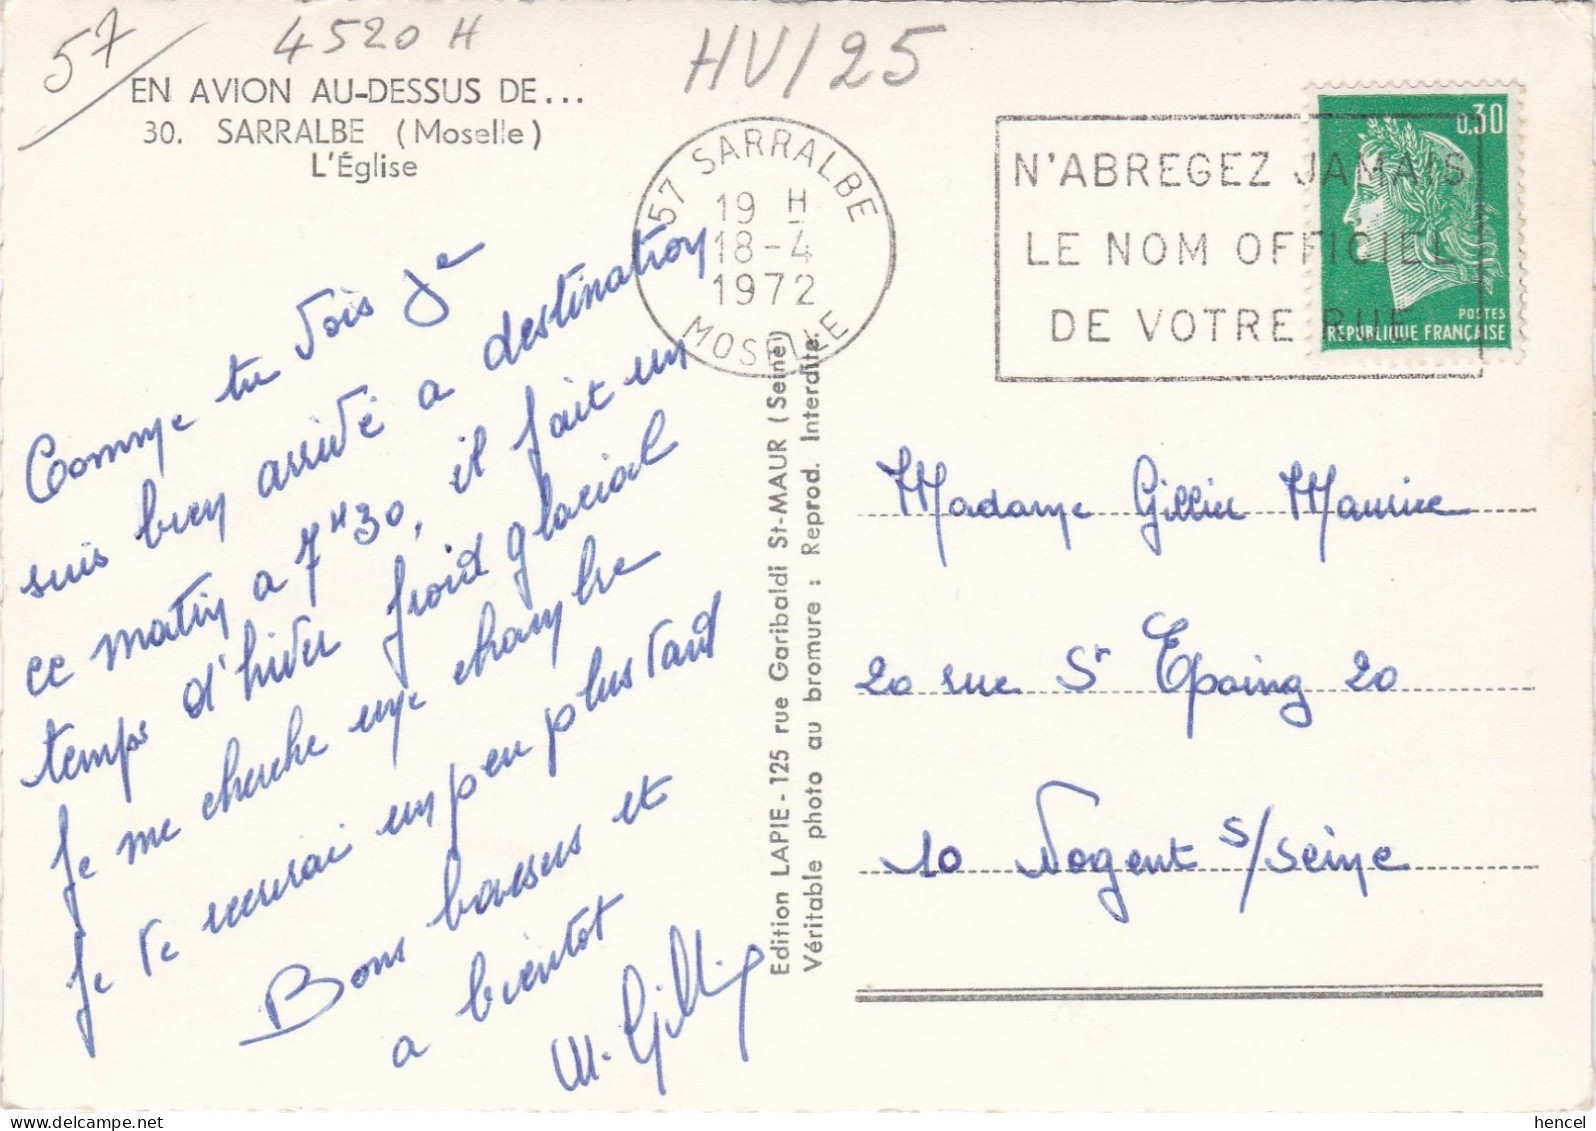 57
4520 H
HV/25
EN AVION AU-DESSUS DE...
30. SARRALBE (Moselle)
L'Église
57 SARRALBE
19 H
18-4
1972
MOSELLE
N'ABREGEZ JAMAIS
LE NOM OFFICIEL
DE VOTRE RUE
0,30
POSTES
REPUBLIQUE FRANÇAISE
Comme tu vois Je
suis bien arrivé a destination
ce matin a 7H30, il fait un
temps d'hiver froid glacial
Je me cherche une chambre
Je te verrai un peu plus tard
Bons baisers et
a bientot
M. Gillier
Edition LAPIE - 125 rue Garibaldi St-MAUR (Seine)
Véritable photo au bromure : Reprod. Interdite.
Madame Gillier Maurice
20 rue St Epoing 20
10 Nogent s/Seine
hencel